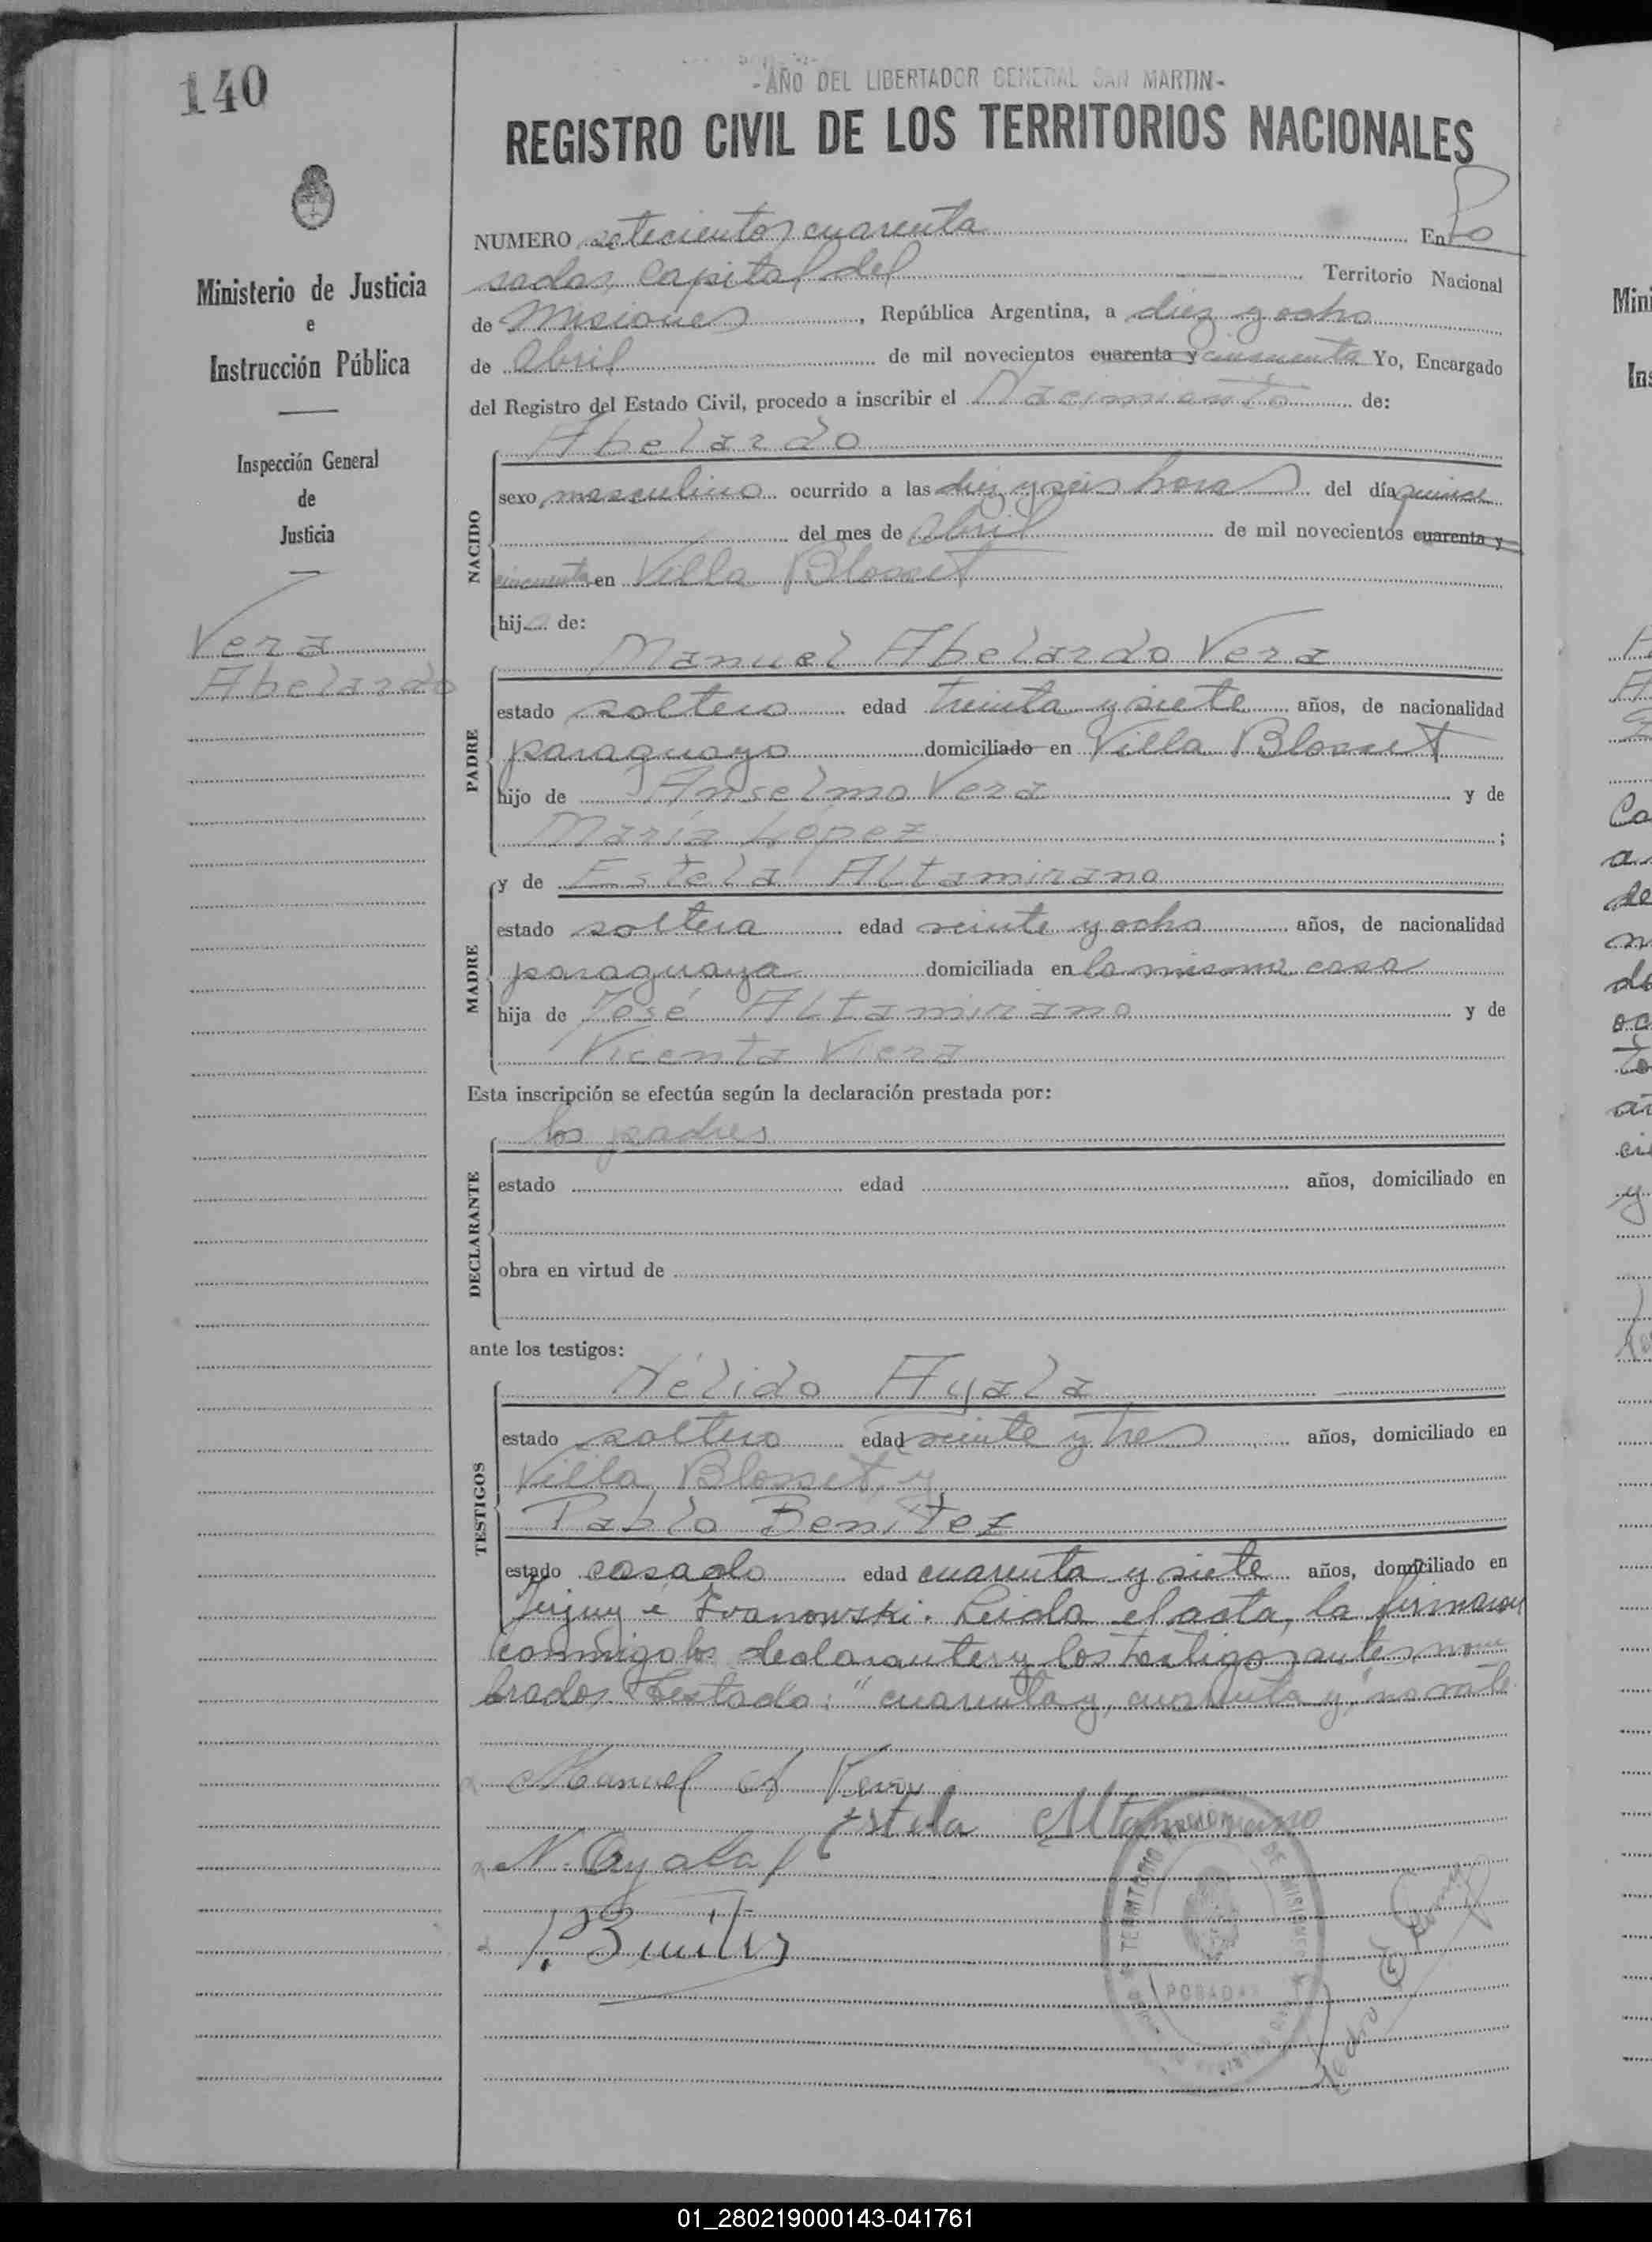 140
-AÑO DEL LIBERTADOR GENERAL SAN MARTIN-
REGISTRO CIVIL DE LOS TERRITORIOS NACIONALES
Ministerio de Justicia
e
Instrucción Pública
Inspección General
de
Justicia
Vera
Abelardo
NUMERO setecientos cuarenta En Po
sadas, Capital del Territorio Nacional
de Misiones, República Argentina, a diez y ocho
de Abril de mil novecientos cuarenta y cincuenta Yo, Encargado
del Registro del Estado Civil, procedo a inscribir el Nacimiento de:
Abelardo
NACIDO
sexo masculino ocurrido a las diez y seis horas del día quince
del mes de Abril de mil novecientos cuarenta y
cincuenta en Villa Blosset
hijo de:
Manuel Abelardo Vera
PADRE
estado soltero edad treinta y siete años, de nacionalidad
paraguayo domiciliado en Villa Blosset
hijo de Anselmo Vera y de
María López ;
y de Estela Altamirano
MADRE
estado soltera edad veinte y ocho años, de nacionalidad
paraguaya domiciliada en la misma casa
hija de José Altamirano y de
Vicenta Viera
Esta inscripción se efectúa según la declaración prestada por:
los padres
DECLARANTE
estado edad años, domiciliado en
obra en virtud de
ante los testigos:
Nélido Ayala
TESTIGOS
estado soltero edad veinte y tres años, domiciliado en
Villa Blosset, y
Pablo Benítez
estado casado edad cuarenta y siete años, domiciliado en
Jujuy é Ivanowski. Leida el acta, la firmaron
conmigo los declarantes y los testigos antes nom
brados. Testado: "cuarenta y, cuarenta y," no vale
Manuel A Vera
Estela Altamirano
N. Ayala
P. Benitez
TERRITORIO DE MISIONES
POSADAS
01_280219000143-041761